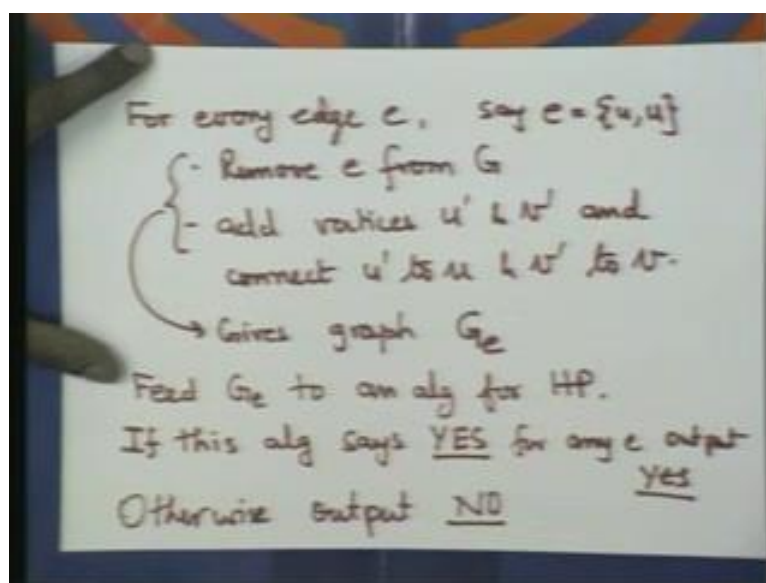 For every edge e, say e = {u, u}
- Remove e from G
- add vertices u' & v' and
connect u' to u & v' to v.
Gives graph Ge
Feed Ge to an alg for HP.
If this alg says YES for any e output
Yes
Otherwise output NO